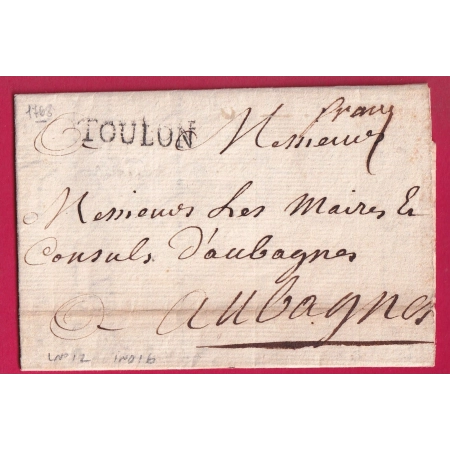 1768
franc
TOULON Messieurs
Messieurs Les Maires &
Consuls d'aubagnes
a aubagnes
n°12 IND 16